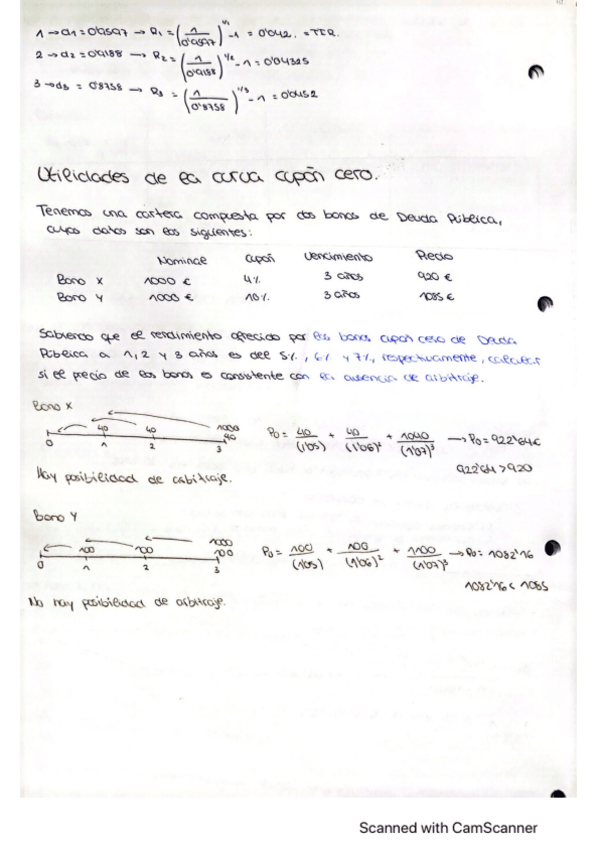 1 → d1 = 0'9597 → R1 = (1/0'9597)^1/1 - 1 = 0'042. = TER.
2 → d2 = 0'9188 → R2 = (1/0'9188)^1/2 - 1 = 0'04325
3 → d3 = 0'8758 → R3 = (1/0'8758)^1/3 - 1 = 0'0452
Utilidades de la curva cupón cero.
Tenemos una cartera compuesta por dos bonos de Deuda Pública,
cuyos datos son los siguientes:
Nominal Cupón Vencimiento Precio
Bono X 1000 € 4% 3 años 920 €
Bono Y 1000 € 10% 3 años 1085 €
Sabiendo que el rendimiento ofrecido por los bonos cupón cero de Deuda
Pública a 1, 2 y 3 años es del 5%, 6% y 7%, respectivamente, calcular
si el precio de los bonos es consistente con la ausencia de arbitraje.
Bono X
40 40 1000
40
0 1 2 3
P0 = 40/(1'05) + 40/(1'06)^2 + 1040/(1'07)^3 → P0 = 922'64€
922'64 > 920
Hay posibilidad de arbitraje.
Bono Y
100 100 1000
100
0 1 2 3
P0 = 100/(1'05) + 100/(1'06)^2 + 1100/(1'07)^3 → P0 = 1082'16
1082'16 < 1085
No hay posibilidad de arbitraje.
Scanned with CamScanner